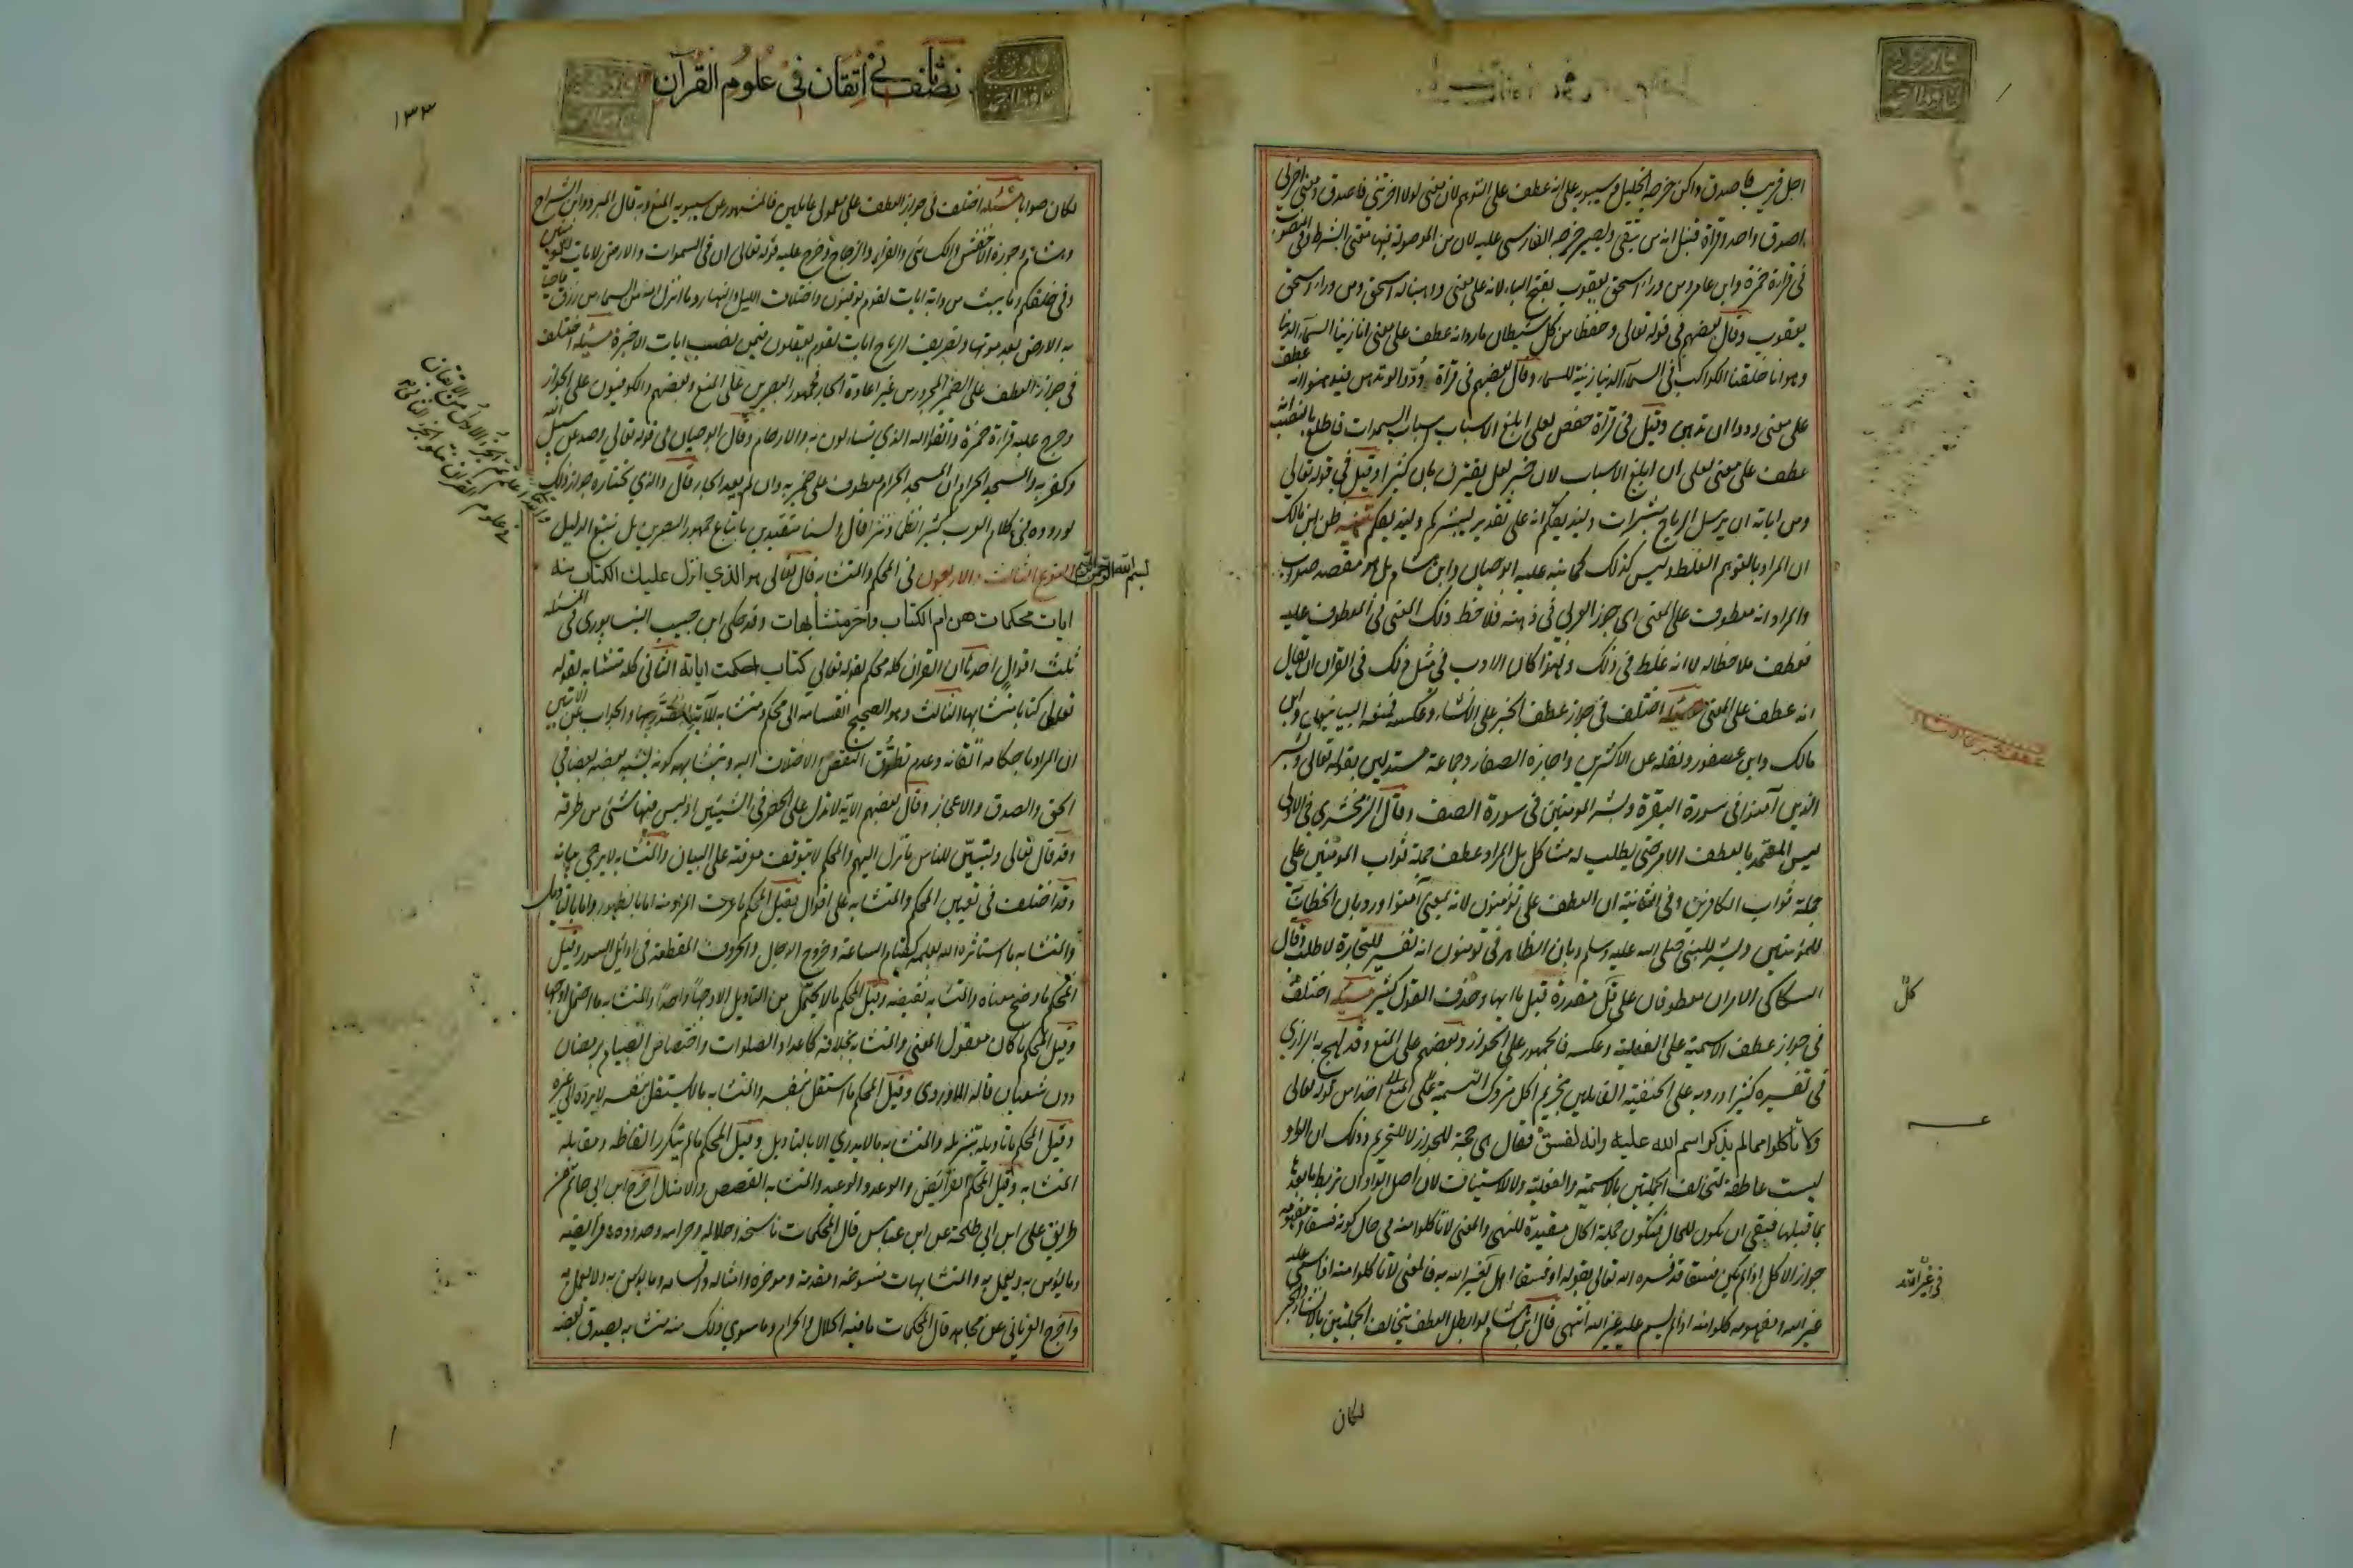 اجل قريب فاصدق واكن خرجه الخليل وسيبويه على انه عطف على التوهم لان معنى لولا اخرتنى فاصدق ومعنى اخرنى
اصدق واحد وقراة قنبل انه من يتقى ويصبر خرجه الفارسى عليه لان من الموصولة فيها معنى الشرط وفى المنصوب
فى قراءة حمزة وابن عامر ومن وراء اسحق يعقوب بفتح الباء لانه على معنى ووهبنا له اسحق ومن وراء اسحق
يعقوب وقال بعضهم فى قوله تعالى وحفظا من كل شيطان مارد انه عطف على معنى انا زينا السماء الدنيا
وهو انا خلقنا الكواكب فى السماء الدنيا زينة للسماء وقال بعضهم فى قراة ودوا لو تدهن فيدهنوا انه عطف
على معنى ودوا ان تدهن وقيل فى قراة حفص لعلى ابلغ الاسباب اسباب السموات فاطلع بالنصب انه
عطف على معنى لعلى ان ابلغ الاسباب لان خبر لعل يقترن بان كثيرا وقيل فى قوله تعالى
ومن اياته ان يرسل الرياح مبشرات وليذيقكم انه على تقدير ليبشركم وليذيقكم تنبيه ظن ابن مالك
ان المراد بالتوهم الغلط وليس كذلك كما نبه عليه ابو حيان وابن هشام بل هو مقصد صواب
والمراد انه عطف على المعنى اى جوز العربى فى ذهنه ملاحظة ذلك المعنى فى المعطوف عليه
فعطف ملاحظا له لا انه غلط فى ذلك ولهذا كان الادب فى مثل ذلك فى القران ان يقال
انه عطف على المعنى مسئلة اختلف فى جواز عطف الخبر على الانشاء وعكسه فمنعه البيانيون وابن
مالك وابن عصفور ونقله عن الاكثرين واجازه الصفار وجماعة مستدلين بقوله تعالى وبشر
الذين آمنوا فى سورة البقرة وبشر المؤمنين فى سورة الصف وقال الزمخشرى فى الاولى
ليس المعتمد بالعطف الامر حتى يطلب له مشاكل بل المراد عطف جملة ثواب المؤمنين على
جملة ثواب الكافرين وفى الثانية ان العطف على تؤمنون لانه بمعنى آمنوا ورد بان الخطاب
للمؤمنين وبشر للنبى صلى الله عليه وسلم وبان الظاهر فى تؤمنون انه تفسير للتجارة لا طلب وقال
السكاكى الامران معطوفان على قل مقدرة قبل يا ايها وحذف القول كثير مسئلة اختلف
فى جواز عطف الاسمية على الفعلية وعكسه فالجمهور على الجواز وبعضهم على المنع وقد لهج به الرازى
فى تفسيره كثيرا ورد به على الحنفية القايلين بتحريم اكل متروك التسمية اخذا من قوله تعالى
ولا تأكلوا مما لم يذكر اسم الله عليه وانه لفسق فقال هى حجة للجواز لا للتحريم وذلك ان الواو
ليست عاطفة لتخالف الجملتين بالاسمية والفعلية ولا للاستيناف لان اصل الواو ان تربط ما بعدها
بما قبلها فبقى ان تكون للحال فتكون جملة الحال مقيدة للنهى والمعنى لا تاكلوا منه فى حال كونه فسقا ومفهومه
جواز الاكل اذا لم يكن فسقا والفسق قد فسره الله تعالى بقوله او فسقا اهل لغير الله به فالمعنى لا تاكلوا منه اذا سمى عليه
غير الله ومفهومه كلوا منه اذا لم يسم عليه غير الله انتهى قال ابن هشام ولو ابطل العطف بتخالف الجملتين بالانشاء والخبر
كل
فى غير الله
لكان
نصف ثانى اتقان فى علوم القرآن
١٣٣
لكان صوابا مسئلة اختلف فى جواز العطف على معمولى عاملين فالمشهور عن سيبويه المنع وبه قال المبرد وابن السراج
وهشام وجوزه الاخفش والكسائى والفراء والزجاج وخرج عليه قوله تعالى ان فى السموات والارض لايات للمؤمنين
وفى خلقكم وما يبث من دابة ايات لقوم يوقنون واختلاف الليل والنهار وما انزل الله من السماء من رزق فاحيا
به الارض بعد موتها وتصريف الرياح ايات لقوم يعقلون فيمن نصب ايات الاخيرة مسئلة اختلف
فى جواز العطف على الضمير المجرور من غير اعادة الجار فجمهور البصريين على المنع وبعضهم والكوفيون على الجواز
وخرج عليه قراءة حمزة واتقوا الله الذى تساءلون به والارحام وقال ابو حيان فى قوله تعالى وصد عن سبيل الله
وكفر به والمسجد الحرام ان المسجد الحرام معطوف على ضمير به وان لم يعد الجار قال والذى نختاره جواز ذلك
لوروده فى كلام العرب كثيرا نظما ونثرا قال ولسنا متعبدين باتباع جمهور البصريين بل نتبع الدليل
بسم الله الرحمن الرحيم
النوع الثالث والاربعون فى المحكم والمتشابه قال تعالى هو الذى انزل عليك الكتاب منه
ايات محكمات هن ام الكتاب واخر متشابهات وقد حكى ابن حبيب النيسابورى فى المسئلة
ثلث اقوال احدها ان القران كله محكم لقوله تعالى كتاب احكمت اياته الثانى كله متشابه لقوله
تعالى كتابا متشابها الثالث وهو الصحيح انقسامه الى محكم ومتشابه للآية المصدر بها والجواب عن الايتين
ان المراد باحكامه اتقانه وعدم تطرق النقص والاختلاف اليه وبتشابهه كونه يشبه بعضه بعضا فى
الحق والصدق والاعجاز وقال بعضهم الآية لا تدل على الحصر فى الشيئين اذ ليس فيها شئ من طرقه
وقد قال تعالى ولتبين للناس ما نزل اليهم والمحكم لا تتوقف معرفته على البيان والمتشابه لا يرجى بيانه
وقد اختلف فى تعيين المحكم والمتشابه على اقوال فقيل المحكم ما عرف المراد منه اما بالظهور واما بالتاويل
والمتشابه ما استاثر الله بعلمه كقيام الساعة وخروج الدجال والحروف المقطعة فى اوائل السور وقيل
المحكم ما وضح معناه والمتشابه نقيضه وقيل المحكم ما لا يحتمل من التاويل الا وجها واحدا والمتشابه ما احتمل اوجها
وقيل المحكم ما كان معقول المعنى والمتشابه بخلافه كاعداد الصلوات واختصاص الصيام برمضان
دون شعبان قاله الماوردى وقيل المحكم ما استقل بنفسه والمتشابه ما لا يستقل بنفسه الا برده الى غيره
وقيل المحكم ما تاويله تنزيله والمتشابه ما لا يدرى الا بالتاويل وقيل المحكم ما لم تتكرر الفاظه ومقابله
المتشابه وقيل المحكم الفرائض والوعد والوعيد والمتشابه القصص والامثال اخرج ابن ابى حاتم من
طريق على ابن ابى طلحة عن ابن عباس قال المحكمات ناسخه وحلاله وحرامه وحدوده وفرائضه
وما يؤمن به ويعمل به والمتشابهات منسوخه ومقدمه وموخره وامثاله واقسامه وما يؤمن به ولا يعمل به
واخرج الفريابى عن مجاهد قال المحكمات ما فيه الحلال والحرام وما سوى ذلك منه متشابه يصدق بعضه